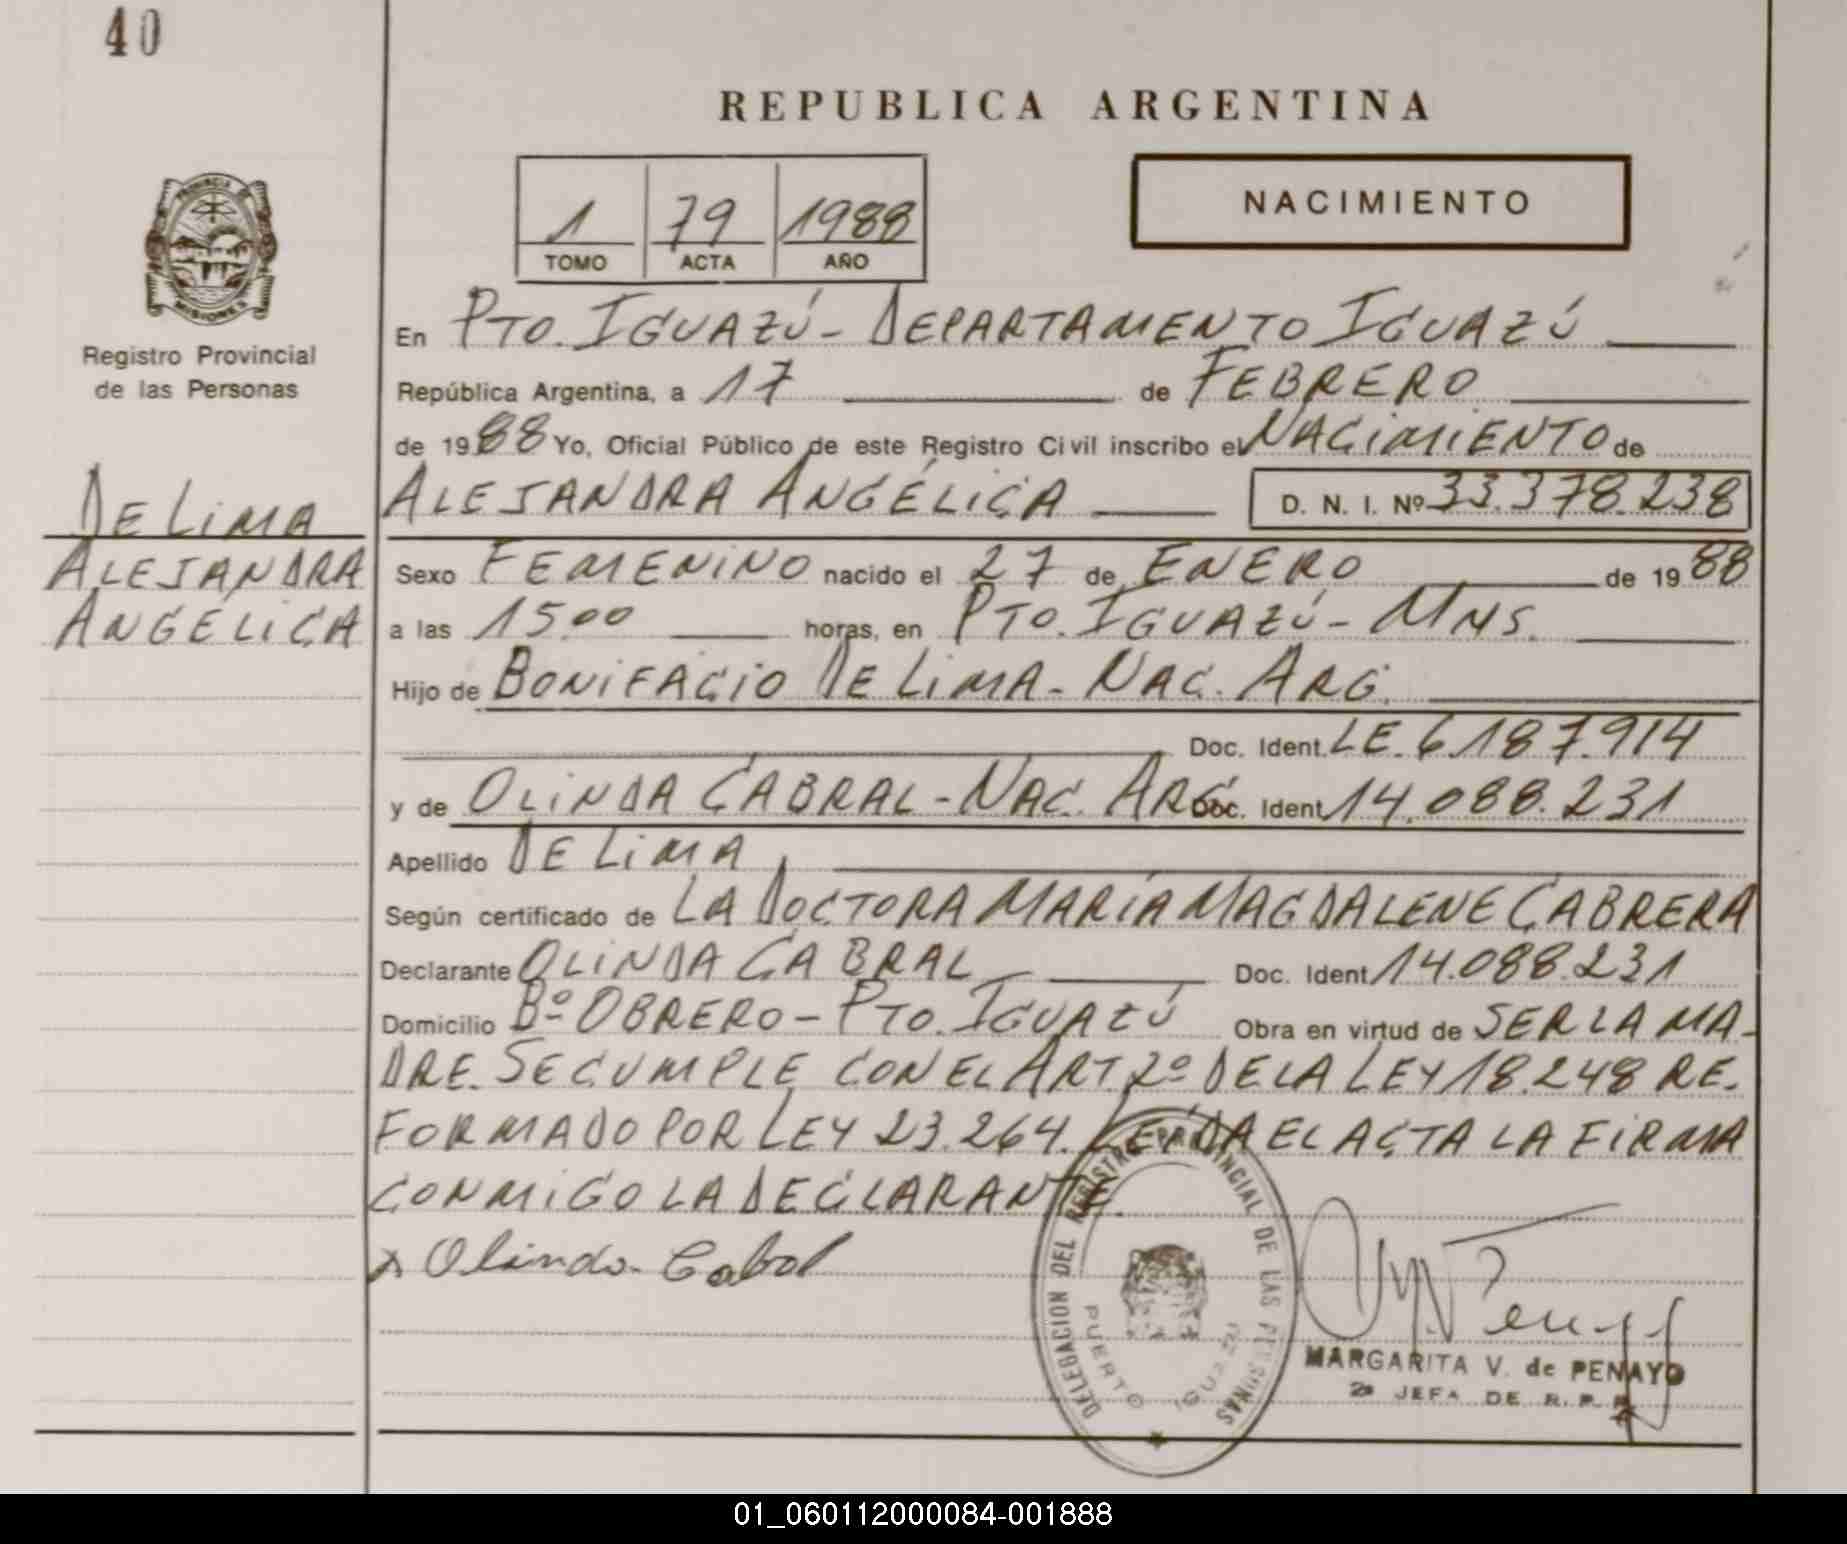 40
REPUBLICA ARGENTINA
1 79 1988
TOMO ACTA AÑO
NACIMIENTO
PROVINCIA DE
MISIONES
Registro Provincial
de las Personas
DE LIMA
ALEJANDRA
ANGÉLICA
En PTO. IGUAZÚ - DEPARTAMENTO IGUAZÚ
República Argentina, a 17 de FEBRERO
de 1988 Yo, Oficial Público de este Registro Civil inscribo el NACIMIENTO de
ALEJANDRA ANGÉLICA D. N. I. Nº 33.378.238
Sexo FEMENINO nacido el 27 de ENERO de 1988
a las 15.00 horas, en PTO. IGUAZÚ - MNS.
Hijo de BONIFACIO DE LIMA - NAC. ARG.
Doc. Ident. LE. 6.187.914
y de OLINDA CABRAL - NAC. ARG. Doc. Ident 14.088.231
Apellido DE LIMA
Según certificado de LA DOCTORA MARÍA MAGDALENE CABRERA
Declarante OLINDA CABRAL Doc. Ident 14.088.231
Domicilio Bº OBRERO - PTO. IGUAZÚ Obra en virtud de SER LA MA-
DRE. SE CUMPLE CON EL ART. 2º DE LA LEY 18.248 RE-
FORMADO POR LEY 23.264. LEÍDA EL ACTA LA FIRMA
CONMIGO LA DECLARANTE.
x Olinda Cabral
DELEGACION DEL REGISTRO PROVINCIAL DE LAS PERSONAS
PUERTO IGUAZU
MARGARITA V. de PENAYO
2a JEFA DE R. P. P.
01_060112000084-001888